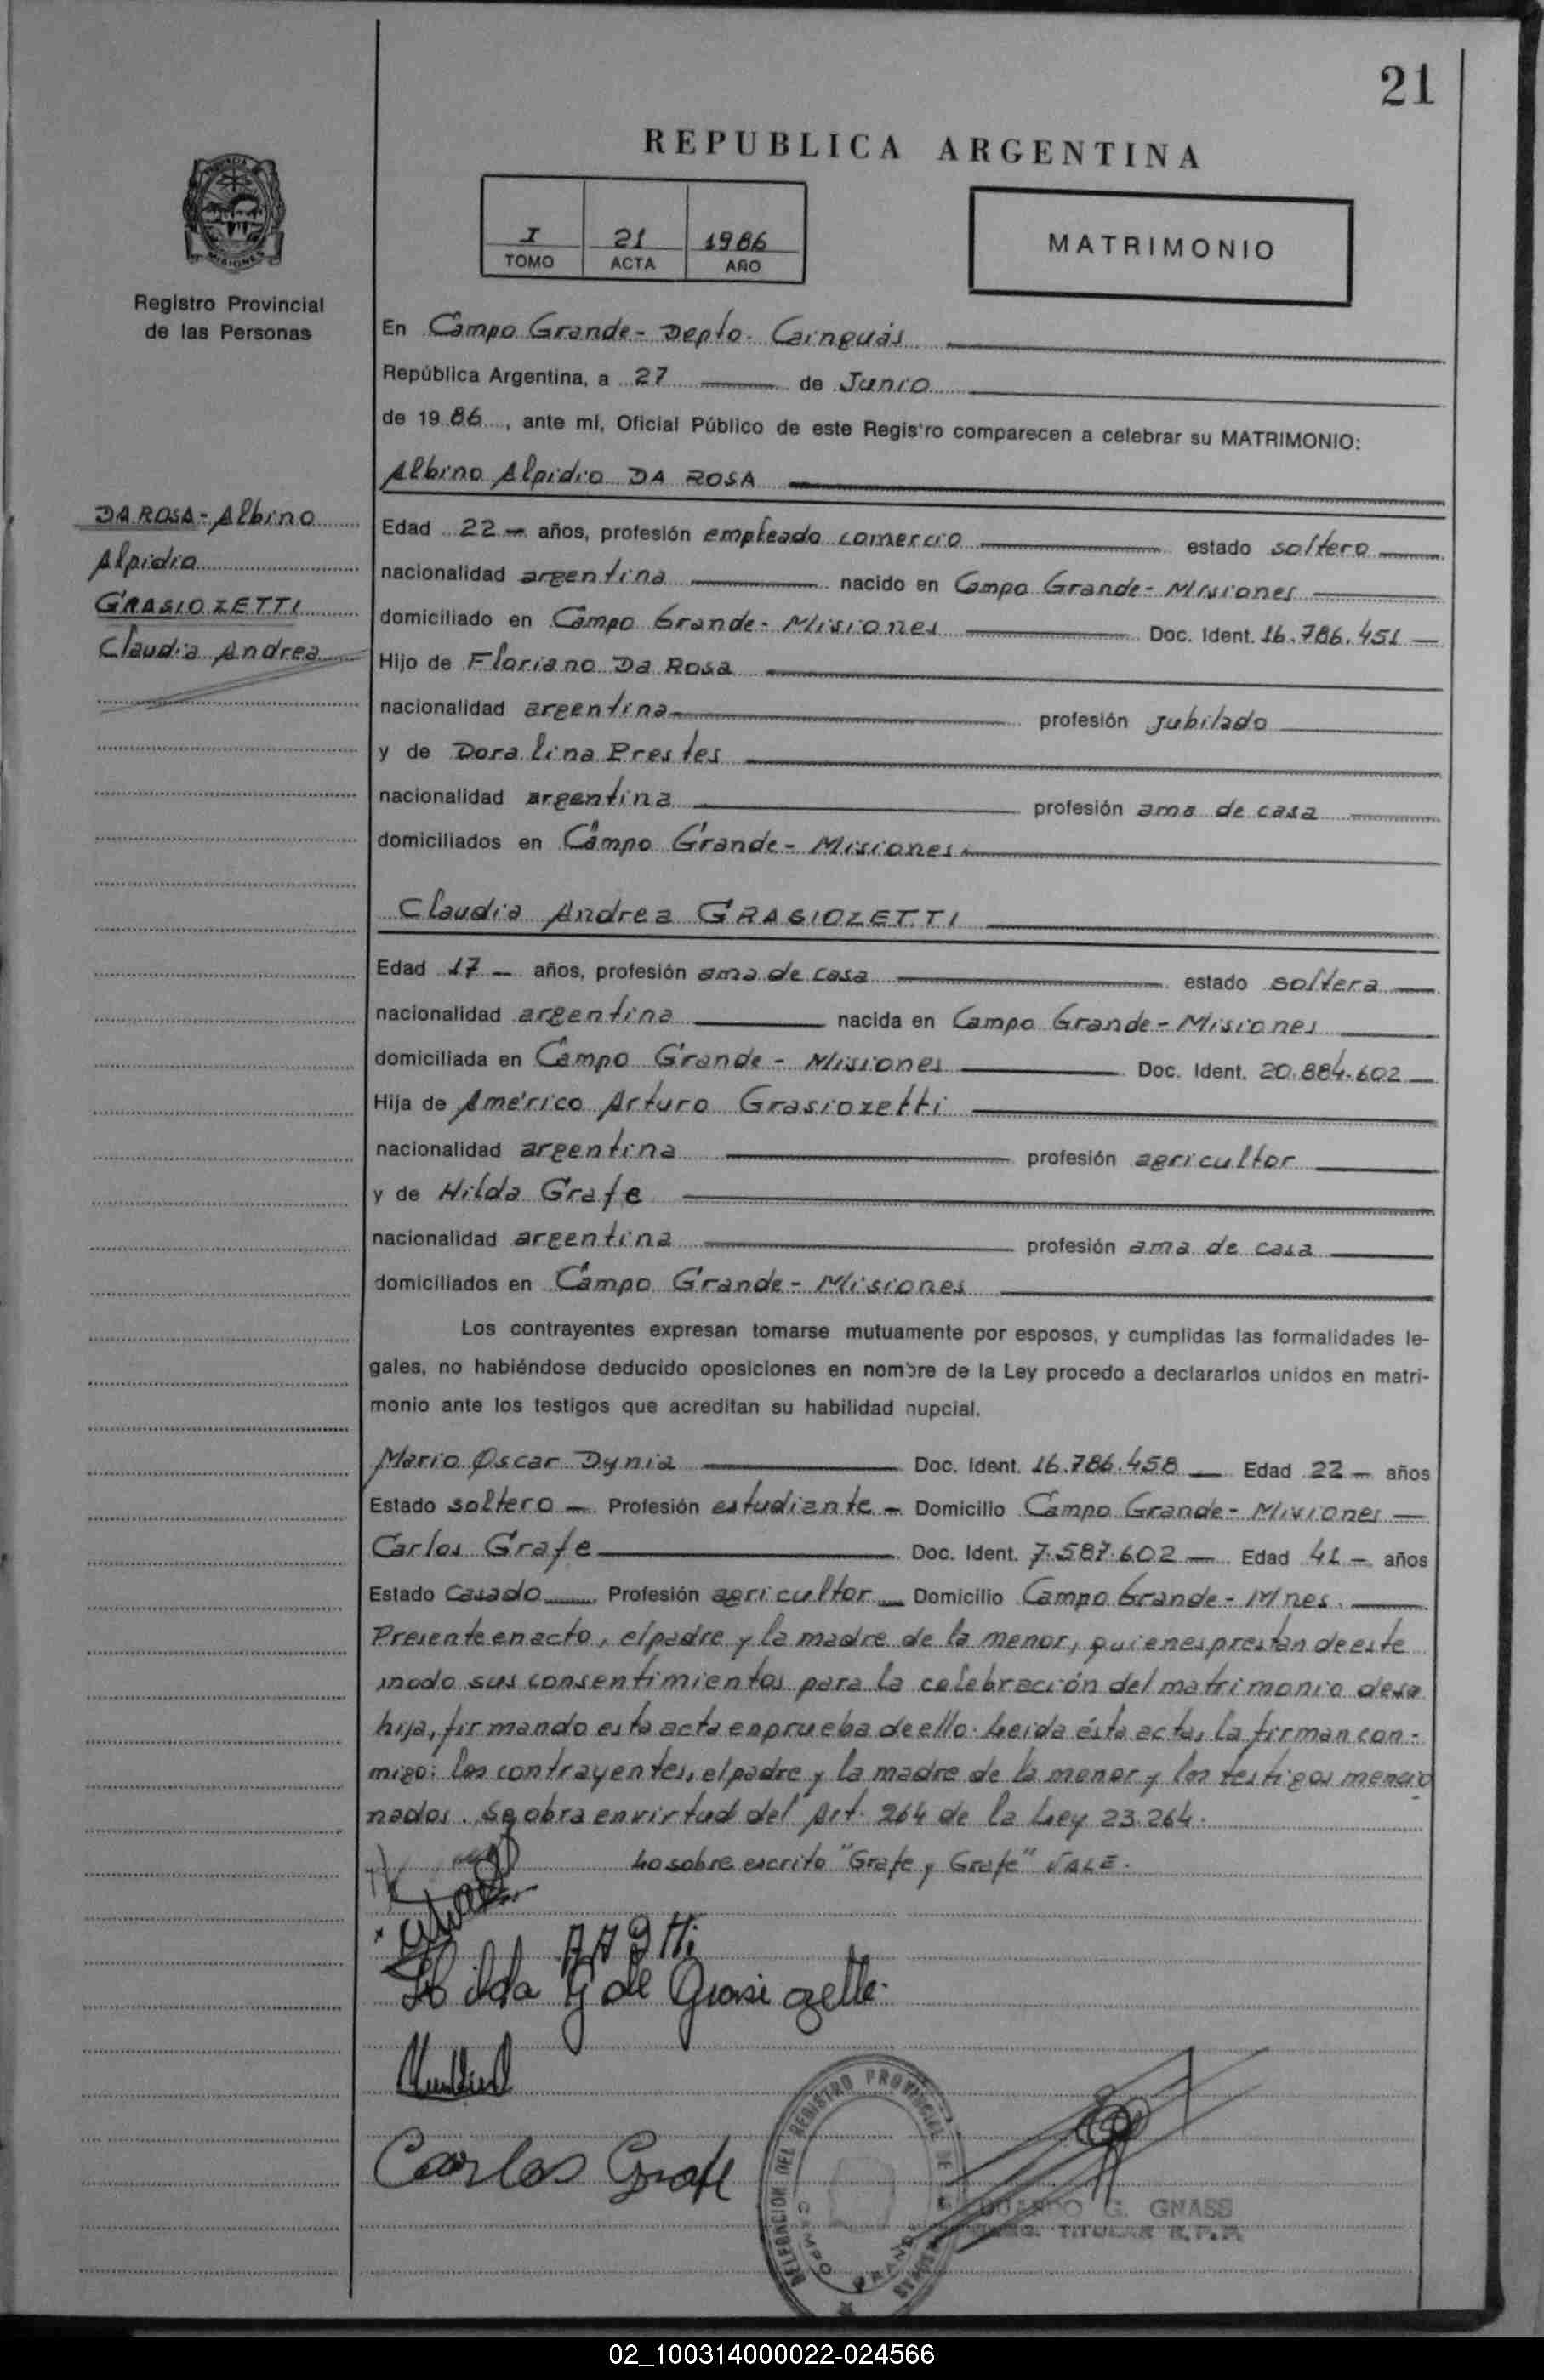 21
REPUBLICA ARGENTINA
I 21 1986
TOMO ACTA AÑO
MATRIMONIO
MISIONES
Registro Provincial
de las Personas
En Campo Grande - Depto. Cainguás
República Argentina, a 27 de Junio
de 19 86, ante mí, Oficial Público de este Registro comparecen a celebrar su MATRIMONIO:
Albino Alpidio DA ROSA
DA ROSA - Albino
Alpidio
GRASIOZETTI
Claudia Andrea
Edad 22 - años, profesión empleado comercio estado soltero
nacionalidad argentina nacido en Campo Grande - Misiones
domiciliado en Campo Grande - Misiones Doc. Ident. 16.786.451
Hijo de Floriano Da Rosa
nacionalidad argentina profesión jubilado
y de Doralina Prestes
nacionalidad argentina profesión ama de casa
domiciliados en Campo Grande - Misiones
Claudia Andrea GRASIOZETTI
Edad 17 - años, profesión ama de casa estado soltera
nacionalidad argentina nacida en Campo Grande - Misiones
domiciliada en Campo Grande - Misiones Doc. Ident. 20.884.602
Hija de Américo Arturo Grasiozetti
nacionalidad argentina profesión agricultor
y de Hilda Grafe
nacionalidad argentina profesión ama de casa
domiciliados en Campo Grande - Misiones
Los contrayentes expresan tomarse mutuamente por esposos, y cumplidas las formalidades le-
gales, no habiéndose deducido oposiciones en nombre de la Ley procedo a declararlos unidos en matri-
monio ante los testigos que acreditan su habilidad nupcial.
Mario Oscar Dynia Doc. Ident. 16.786.458 Edad 22 - años
Estado soltero - Profesión estudiante - Domicilio Campo Grande - Misiones
Carlos Grafe Doc. Ident. 7.587.602 Edad 41 - años
Estado casado Profesión agricultor Domicilio Campo Grande - Mnes.
Presente en acto, el padre y la madre de la menor, quienes prestan de este
modo sus consentimientos para la celebración del matrimonio de su
hija, firmando esta acta en prueba de ello. Leida ésta acta, la firman con-
migo: los contrayentes, el padre y la madre de la menor y los testigos mencio
nados. Se obra en virtud del Art. 264 de la Ley 23.264.
Lo sobre escrito "Grafe y Grafe" VALE.
Hilda G de Grasiozetti
Carlos Grafe
DELEGACION DEL REGISTRO PROVINCIAL DE
CAMPO GRANDE
G. GNASS
TITULAR R.P.P.
02_100314000022-024566